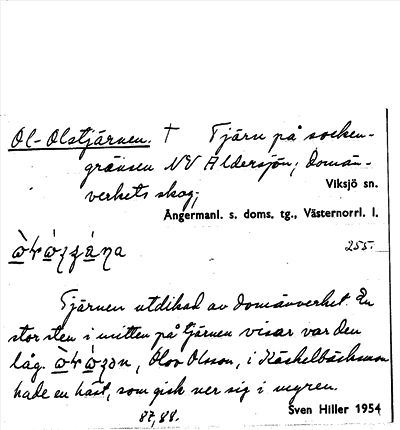 Ol-Olstjärnen. † Tjärn på socken-
gränsen NV Aldersjön; Domän-
verkets skog;
Viksjö sn.
Ångermanl. s. doms. tg., Västernorrl. l.
255.
Tjärnen utdikad av Domänverket. En
stor sten i mitten på tjärnen visar var den
låg. Olov Olsson, i Häskelbäcksmon
hade en häst, som gick ner sig i myren.
87,88.
Sven Hiller 1954